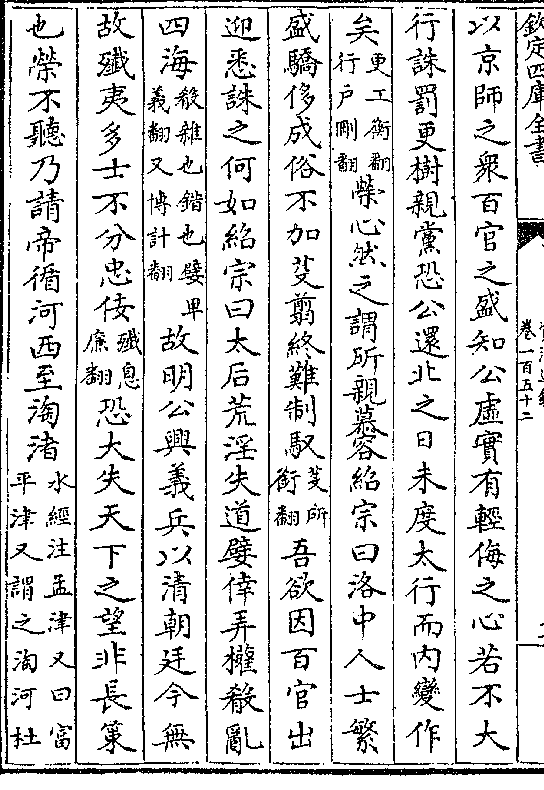 欽定四庫全書
卷一百五十二
以京師之衆百官之盛知公虛實有輕侮之心若不大
行誅罰更樹親黨恐公還北之日未度太行而内變作
矣更工衡翻行户剛翻榮心然之謂所親慕容紹宗曰洛中人士繁
盛驕侈成俗不加芟翦終難制馭芟所銜翻吾欲因百官出
迎悉誅之何如紹宗曰太后荒淫失道嬖倖弄權殽亂
四海殽雜也錯也嬖卑義翻又博計翻故明公興義兵以清朝廷今無
故殲夷多士不分忠佞殲息廉翻恐大失天下之望非長策
也榮不聽乃請帝循河西至淘渚水經注孟津又曰富平津又謂之淘河杜